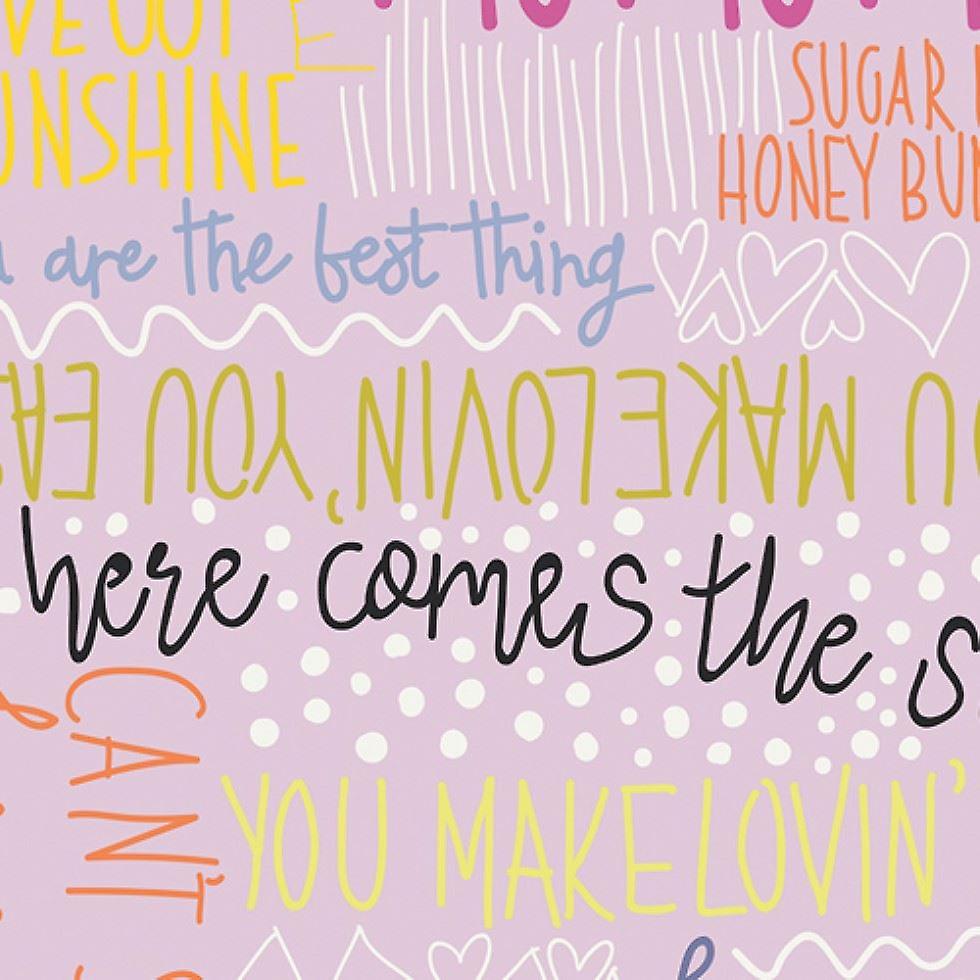 VE OUT
UNSHINE
SUGAR
HONEY BUN
are the best thing
U MAKE LOVIN' YOU EAS
here comes the s
CAN'T
YOU MAKE LOVIN'